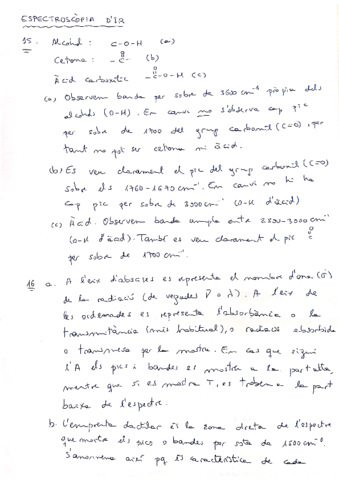 ESPECTROSCÒPIA D'IR
15. Alcohol : C-O-H (a)
Cetona : -C- (b)
O
Àcid carboxílic -C-O-H (c)
O
(a) Observem banda per sobre de 3600 cm⁻¹ pròpia dels
alcohols (O-H). En canvi no s'observa cap pic
per sobre de 1700 del grup carbonil (C=O), per
tant no pot ser cetona ni àcid.
(b) Es veu clarament el pic del grup carbonil (C=O)
sobre els 1760-1690 cm⁻¹. En canvi no hi ha
cap pic per sobre de 3000 cm⁻¹ (O-H d'àcid)
(c) Àcid. Observem banda ampla entre 2500-3000 cm⁻¹
(O-H d'àcid). També es veu clarament el pic C
O
per sobre de 1700 cm⁻¹.
16 a. A l'eix d'abscises es representa el nombre d'ona (σ)
de la radiació (de vegades ν o λ). A l'eix de
les ordenades es representa l'absorbància o la
transmitància (més habitual), o radiació absorbida
o transmesa per la mostra. En cas que sigui
l'A els pics i bandes es mostren a la part alta,
mentre que si es mostra T, es troben a la part
baixa de l'espectre.
b. L'empremta dactilar és la zona dreta de l'espectre
que mostra els pics o bandes per sota de 1500 cm⁻¹.
S'anomena així pq és característica de cada